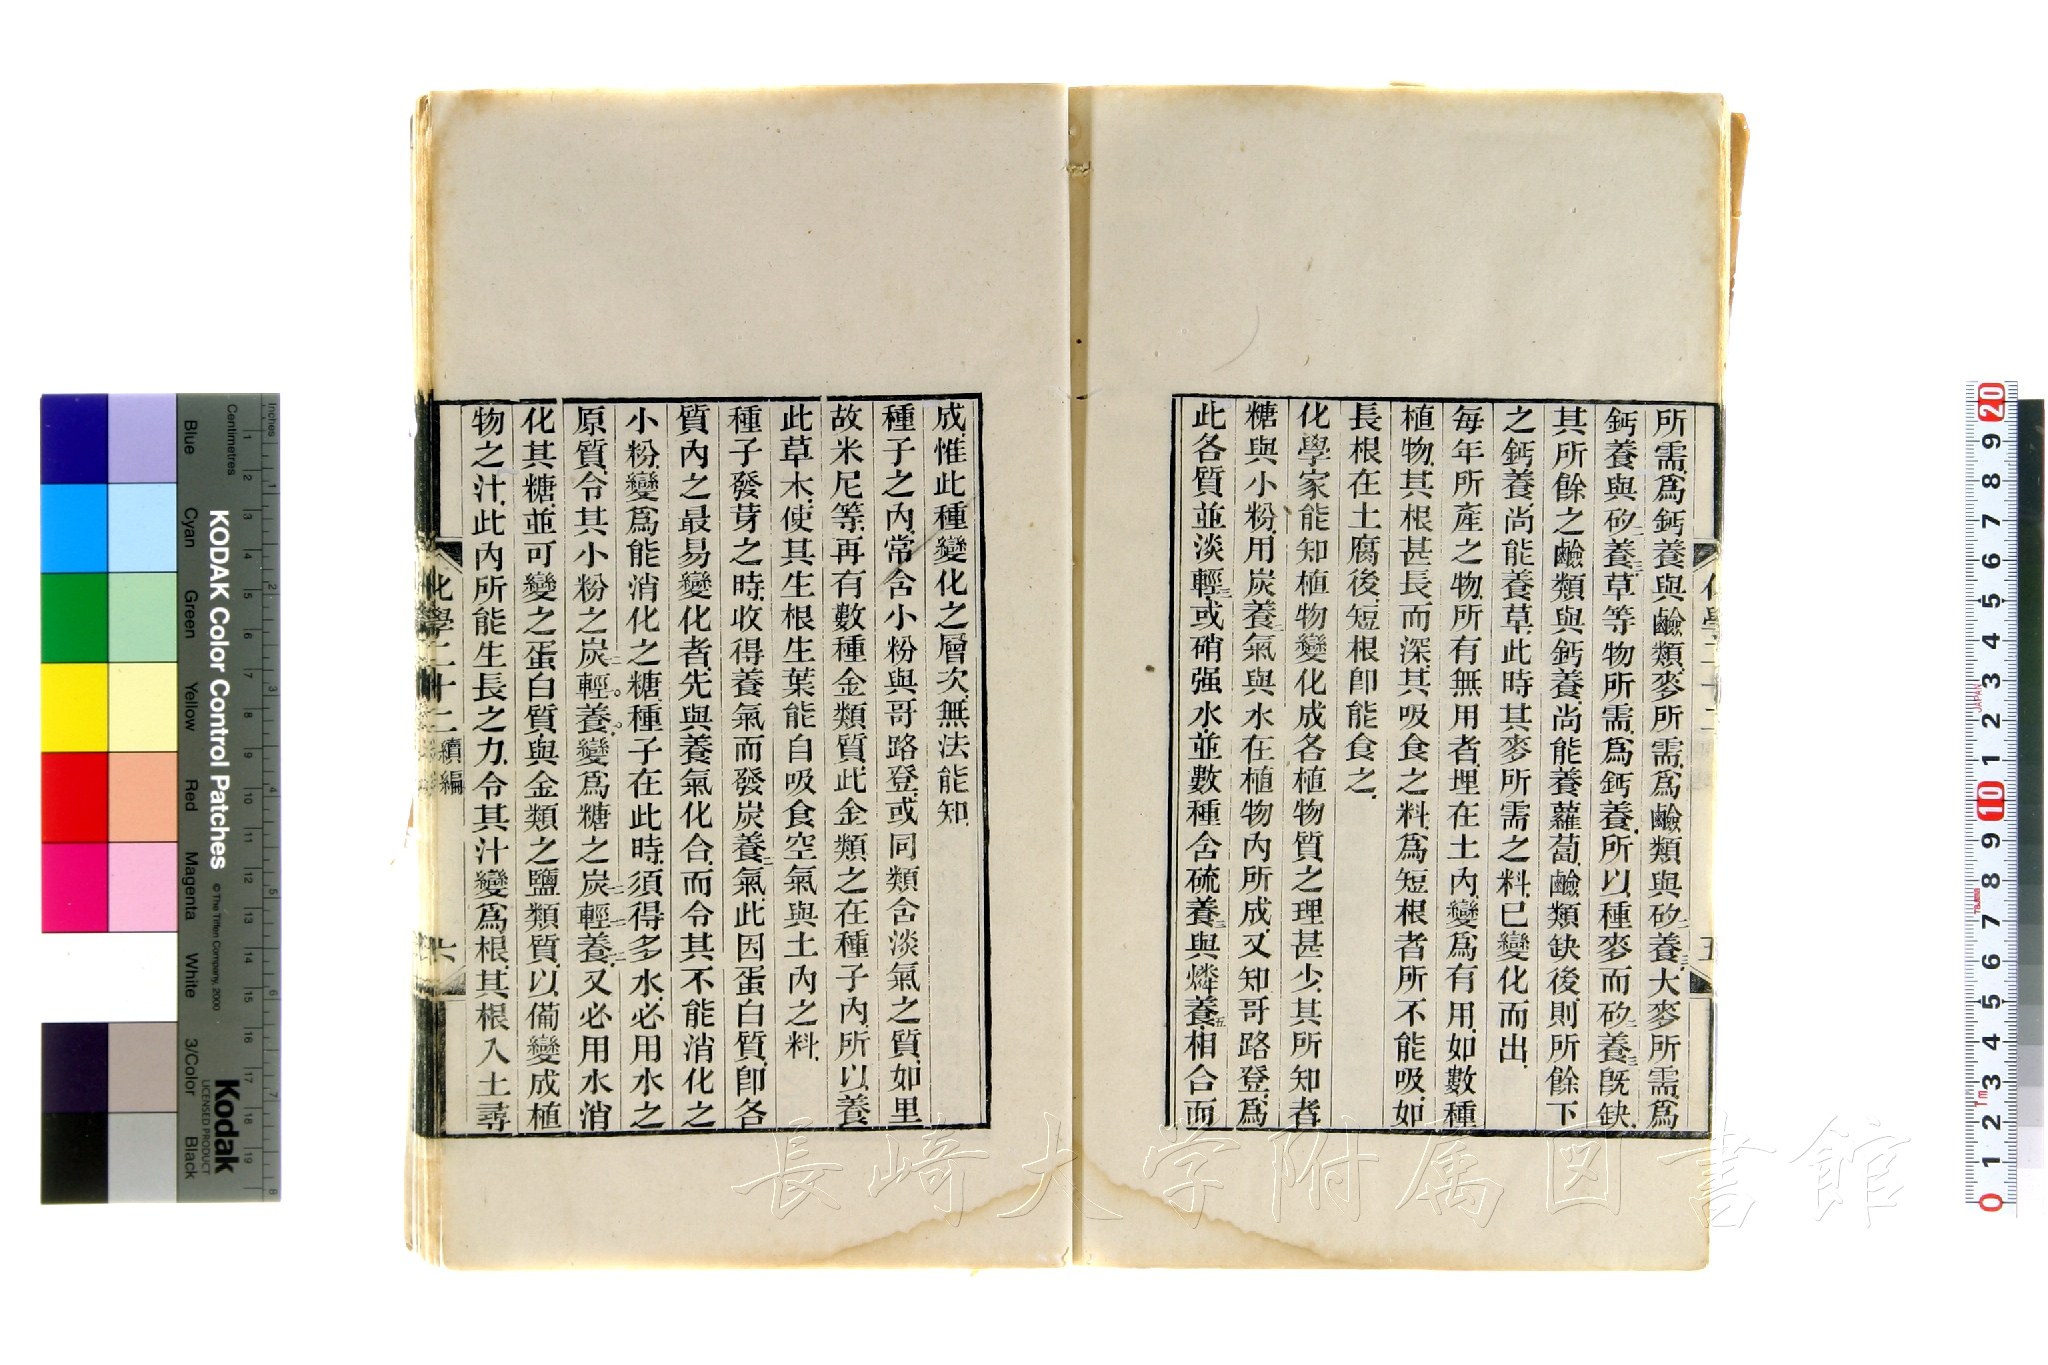 所需、爲鈣養與鹼類、麥所需、爲鹼類與矽養三、大麥所需、爲
鈣養與矽養三、草等物所需、爲鈣養、所以種麥而矽養三旣缺、
其所餘之鹼類與鈣養、尚能養蘿蔔、鹼類缺後、則所餘下
之鈣養、尚能養草、此時其麥所需之料、已變化而出、
每年所產之物、所有無用者、埋在土內、變爲有用、如數種
植物、其根甚長而深、其吸食之料、爲短根者所不能吸、如
長根在土腐後、短根卽能食之、
化學家能知植物變化成各植物質之理甚少、其所知者、
糖與小粉、用炭養二氣與水在植物內所成、又知哥路登、爲
此各質並淡輕三、或硝强水、並數種含硫養三與燐養五、相合而
化學二十二
五
成、惟此種變化之層次、無法能知、
種子之內、常含小粉與哥路登、或同類含淡氣之質、如里
故米尼等、再有數種金類質、此金類之在種子內、所以養
此草木、使其生根生葉、能自吸食空氣與土內之料、
種子發芽之時、收得養氣而發炭養二氣、此因蛋白質、卽各
質內之最易變化者、先與養氣化合、而令其不能消化之
小粉、變爲能消化之糖、種子在此時、須得多水、必用水之
原質、令其小粉之炭二輕。養。變爲糖之炭二輕二養二、又必用水消
化其糖、並可變之蛋白質與金類之鹽類質、以備變成植
物之汁、此內所能生長之力、令其汁變爲根、其根入土尋
化學二十二 續編
六
KODAK Color Control Patches
© The Tiffen Company, 2000
Kodak
LICENSED PRODUCT
Inches
Centimetres
Blue
Cyan
Green
Yellow
Red
Magenta
White
3/Color
Black
JAPAN
長崎大学附属図書館